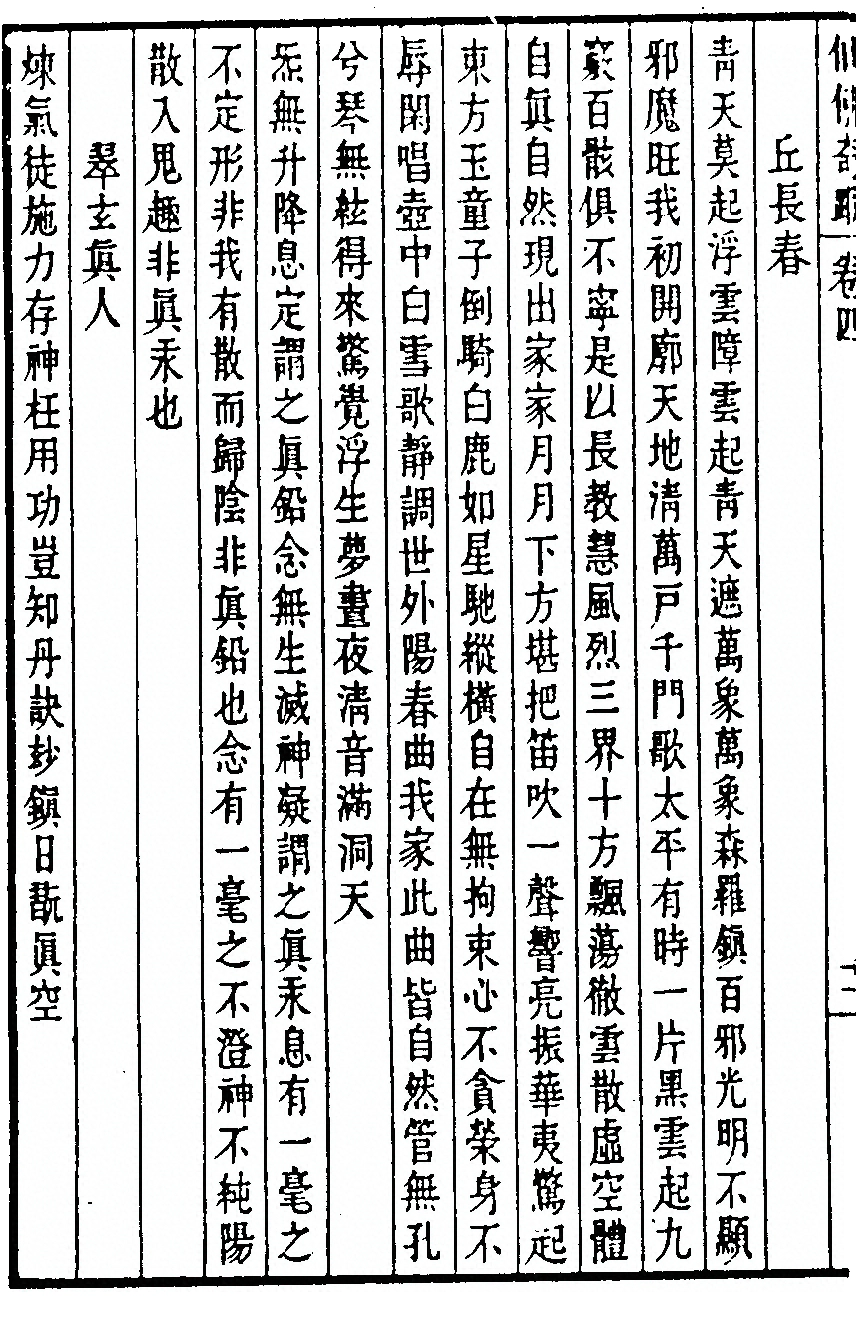 仙佛奇蹤 卷四 十二
丘長春
青天莫起浮雲障雲起青天遮萬象萬象森羅鎮百邪光明不顯
邪魔旺我初開廓天地清萬戸千門歌太平有時一片黒雲起九
竅百骸俱不寧是以長教慧風烈三界十方飄蕩徹雲散虛空體
自眞自然現出家家月月下方堪把笛吹一聲響亮振華夷驚起
東方玉童子倒騎白鹿如星馳縱橫自在無拘束心不貪榮身不
辱閑唱壺中白雪歌靜調世外陽春曲我家此曲皆自然管無孔
兮琴無絃得來驚覺浮生夢晝夜清音滿洞天
炁無升降息定謂之眞鉛念無生滅神凝謂之眞汞息有一毫之
不定形非我有散而歸陰非眞鉛也念有一毫之不澄神不純陽
散入鬼趣非眞汞也
翠玄眞人
煉氣徒施力存神枉用功豈知丹訣妙鎭日翫眞空